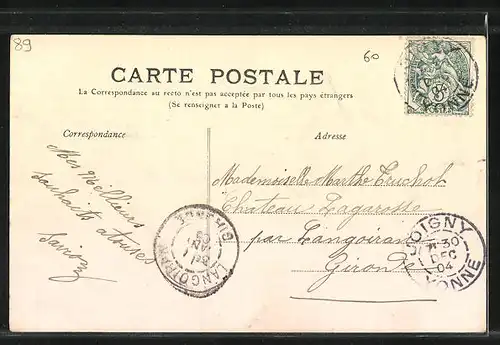 89
60
CARTE POSTALE
La Correspondance au recto n'est pas acceptée par tous les pays étrangers
(Se renseigner a la Poste)
Correspondance
Adresse
Mes Meilleurs
souhaits à toutes
Mademoiselle Marthe Truchot
Chateau Lagarosse
par Langoiran
Gironde
LANGOIRAN
GIRONDE
JOIGNY
30
DEC
04
YONNE
YONNE